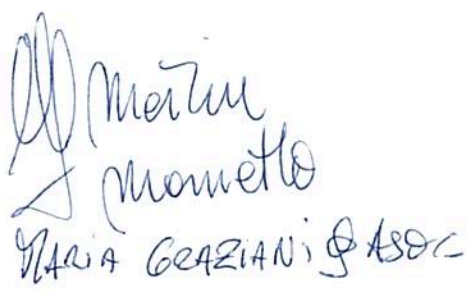 Martin
Mometto
MARIA GRAZIANI & ASOC